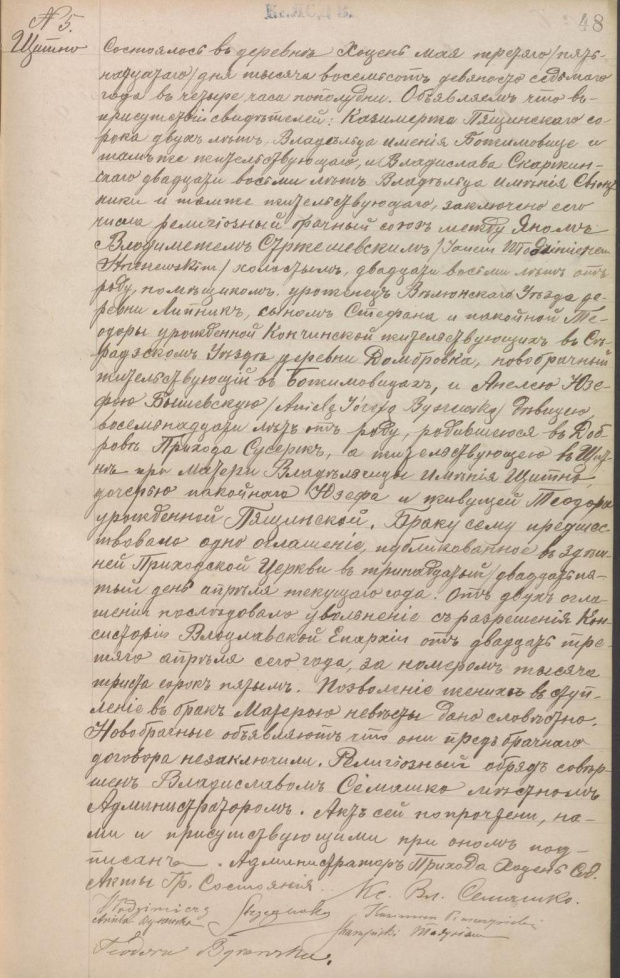 48
N 5.
Щитно
Состоялось въ деревнѣ Хоцень мая третяго /пят-
надцатаго/ дня тысяча восемьсотъ девяносто седьмаго
года въ четыре часа пополудни. Объявляемъ что въ
присутствіи свидѣтелей: Казимержа Пящинскаго со-
рока двухъ лѣтъ, Владѣльца именія Божимовице и
тамъ же жительствующаго, и Владислава Скаржин-
скаго двадцати восьми лѣтъ Владѣльца имѣнія
и тамже жительствующаго, заключено сего
числа религіозный брачный союзъ между Яномъ
Влодимежемъ Стржешевскимъ /Janem Włodzimierzem
Strzeszewskim/ холостымъ, двадцати восьми лѣтъ отъ
роду, помѣщикомъ уроженецъ Вѣлюнскаго Уѣзда де-
ревни Липникъ, сыномъ Стефана и покойной Те-
одоры урожденной Кончинской жительствующихъ въ Сѣ-
радзскомъ Уѣздѣ деревни Домбровка, новобрачный
жительствующій въ Божимовицахъ, и Анелею Юзе-
фою Бышевскую /Anielą Józefą Byszewską/ дѣвицею
восемнадцати лѣтъ отъ роду, родившеюся въ Доб-
ровѣ Прихода а жительствующею въ Щит-
нѣ при Матери Владѣлицы Имѣнія Щитно
дочерью покойнаго Юзефа и живущей Теодоры
урожденной Пящинской. Браку сему предшес-
твовало одно оглашеніе, публикованное въ здѣш-
ней Приходской Церкви въ тринадцатый /двадцать пя-
тый день апрѣля текущаго года. Отъ двухъ огла-
шеній послѣдовало увольненіе съ разрешенія Кон-
систоріи Влоцлавской Епархіи отъ двадцать тре-
тяго апрѣля сего года, за номеромъ тысяча
триста сорокъ пятымъ. Позволеніе женихъ въ вступ-
леніе въ бракъ Матерою невѣсты дано словѣстно.
Новобрачные объявляютъ что они предъ брачнаго
договора незаключили. Религіозный обрядъ совер-
шенъ Владиславомъ Семашко мѣстномъ
Администраторомъ. Актъ сей по прочтеніи, на-
ми и присутствующими при ономъ под-
писанъ. Администраторъ Прихода Хоцень Сод.
Акты Гр. Состоянія. Кс. Вл. Семашко.
Włodzimierz
Aniela
Teodora Byszewska.